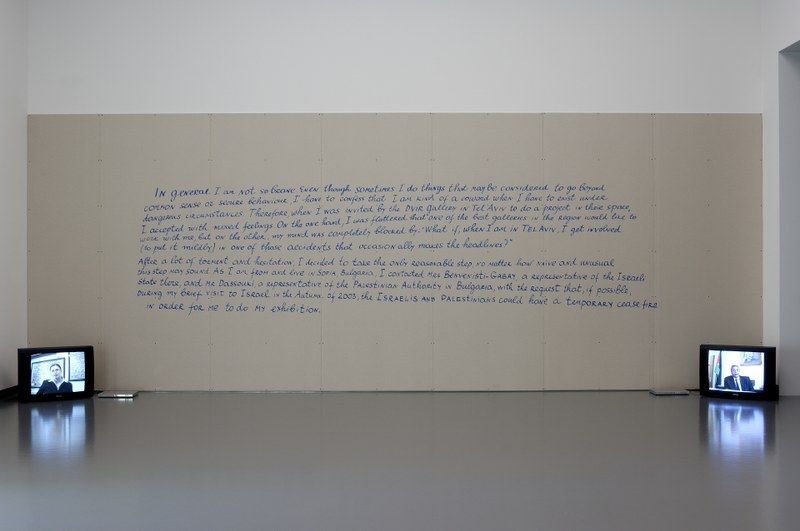 In general I am not so brave even though sometimes I do things that maybe considered to go beyond
common sense or series behaviour. I have to confess that I am kind of a coward when I have to exist under
dangerous circumstances. Therefore, when I was invited by the DVIR Gallery in Tel Aviv to do a project in their space,
I accepted with mixed feelings. On the one hand, I was flattered that one of the best galleries in the region would like to
work with me, but on the other, my mind was completely blocked by: "What if, when I am in TEL AVIV, I get involved
(to put it mildly) in one of those accidents that occasionally makes the headlines?"
After a lot of torment and hesitation, I decided to take the only reasonable step, no matter how naive and unusual
this step may sound. As I am from and live in Sofia, Bulgaria, I contacted Mrs Benvenisti-Gabay, a representative of the Israeli
State there, and Mr Dassouki, a representative of the Palestinian Authority in Bulgaria, with the request that, if possible,
during my brief visit to Israel in the Autumn of 2003, the ISRAELIS AND PALESTINIANS could have a temporary ceasefire
in order for me to do my exhibition.